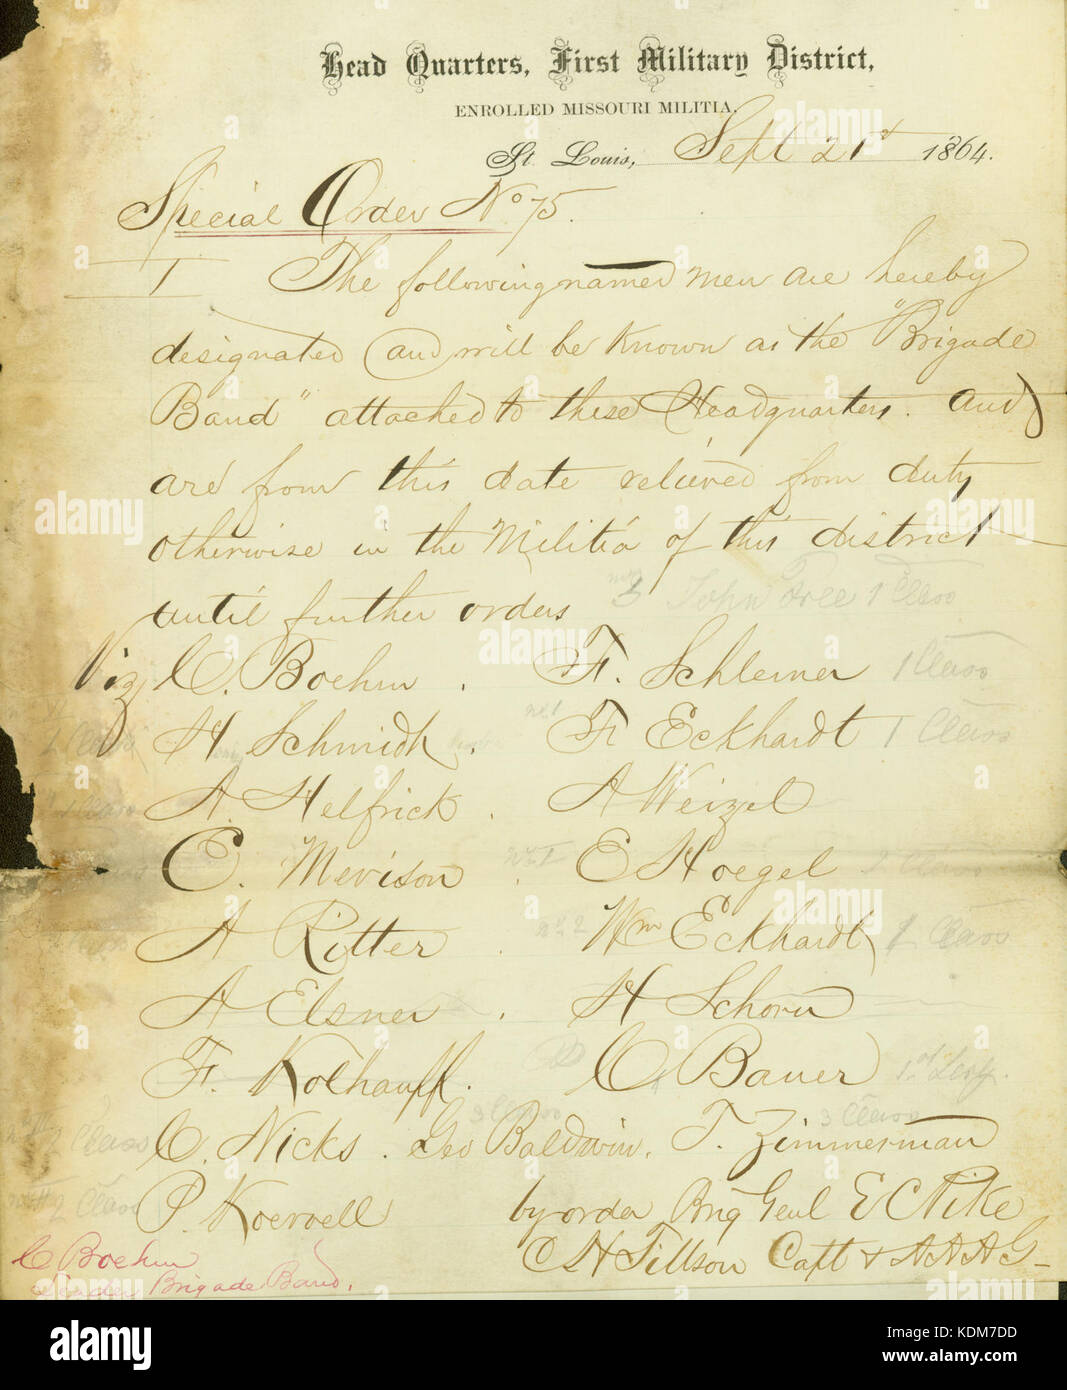 Head Quarters, First Military District,
ENROLLED MISSOURI MILITIA.
St. Louis, Sept 21st 1864.
Special Order No 75.
I The following named men are hereby
designated and will be known as the "Brigade
Band" attached to these Headquarters. And
are from this date relieved from duty
otherwise in the Militia of this district
until further orders
3 John Free 1 Class
Viz C. Boehm . F. Schlemer 1 Class
2 Class H. Schmidt . No 1 F. Eckhardt 1 Class
A. Helfrick . A Weizel
C. Mevison . No 1 E Hoegel 2 Class
A Ritter . No 2 Wm Eckhardt 1 Class
A Elsner . H Schorn
F. Kolhauff. C Bauer
3 Class 3 Class
2 Class C. Nicks . Geo Baldwin. T. Zimmerman
2 Class P. Koervell by order Brig Genl E C Pike
C H Tillson Capt & A A A G
C Boehm
Leader Brigade Band.
alamy
alamy stock photo
KDM7DD
www.alamy.com